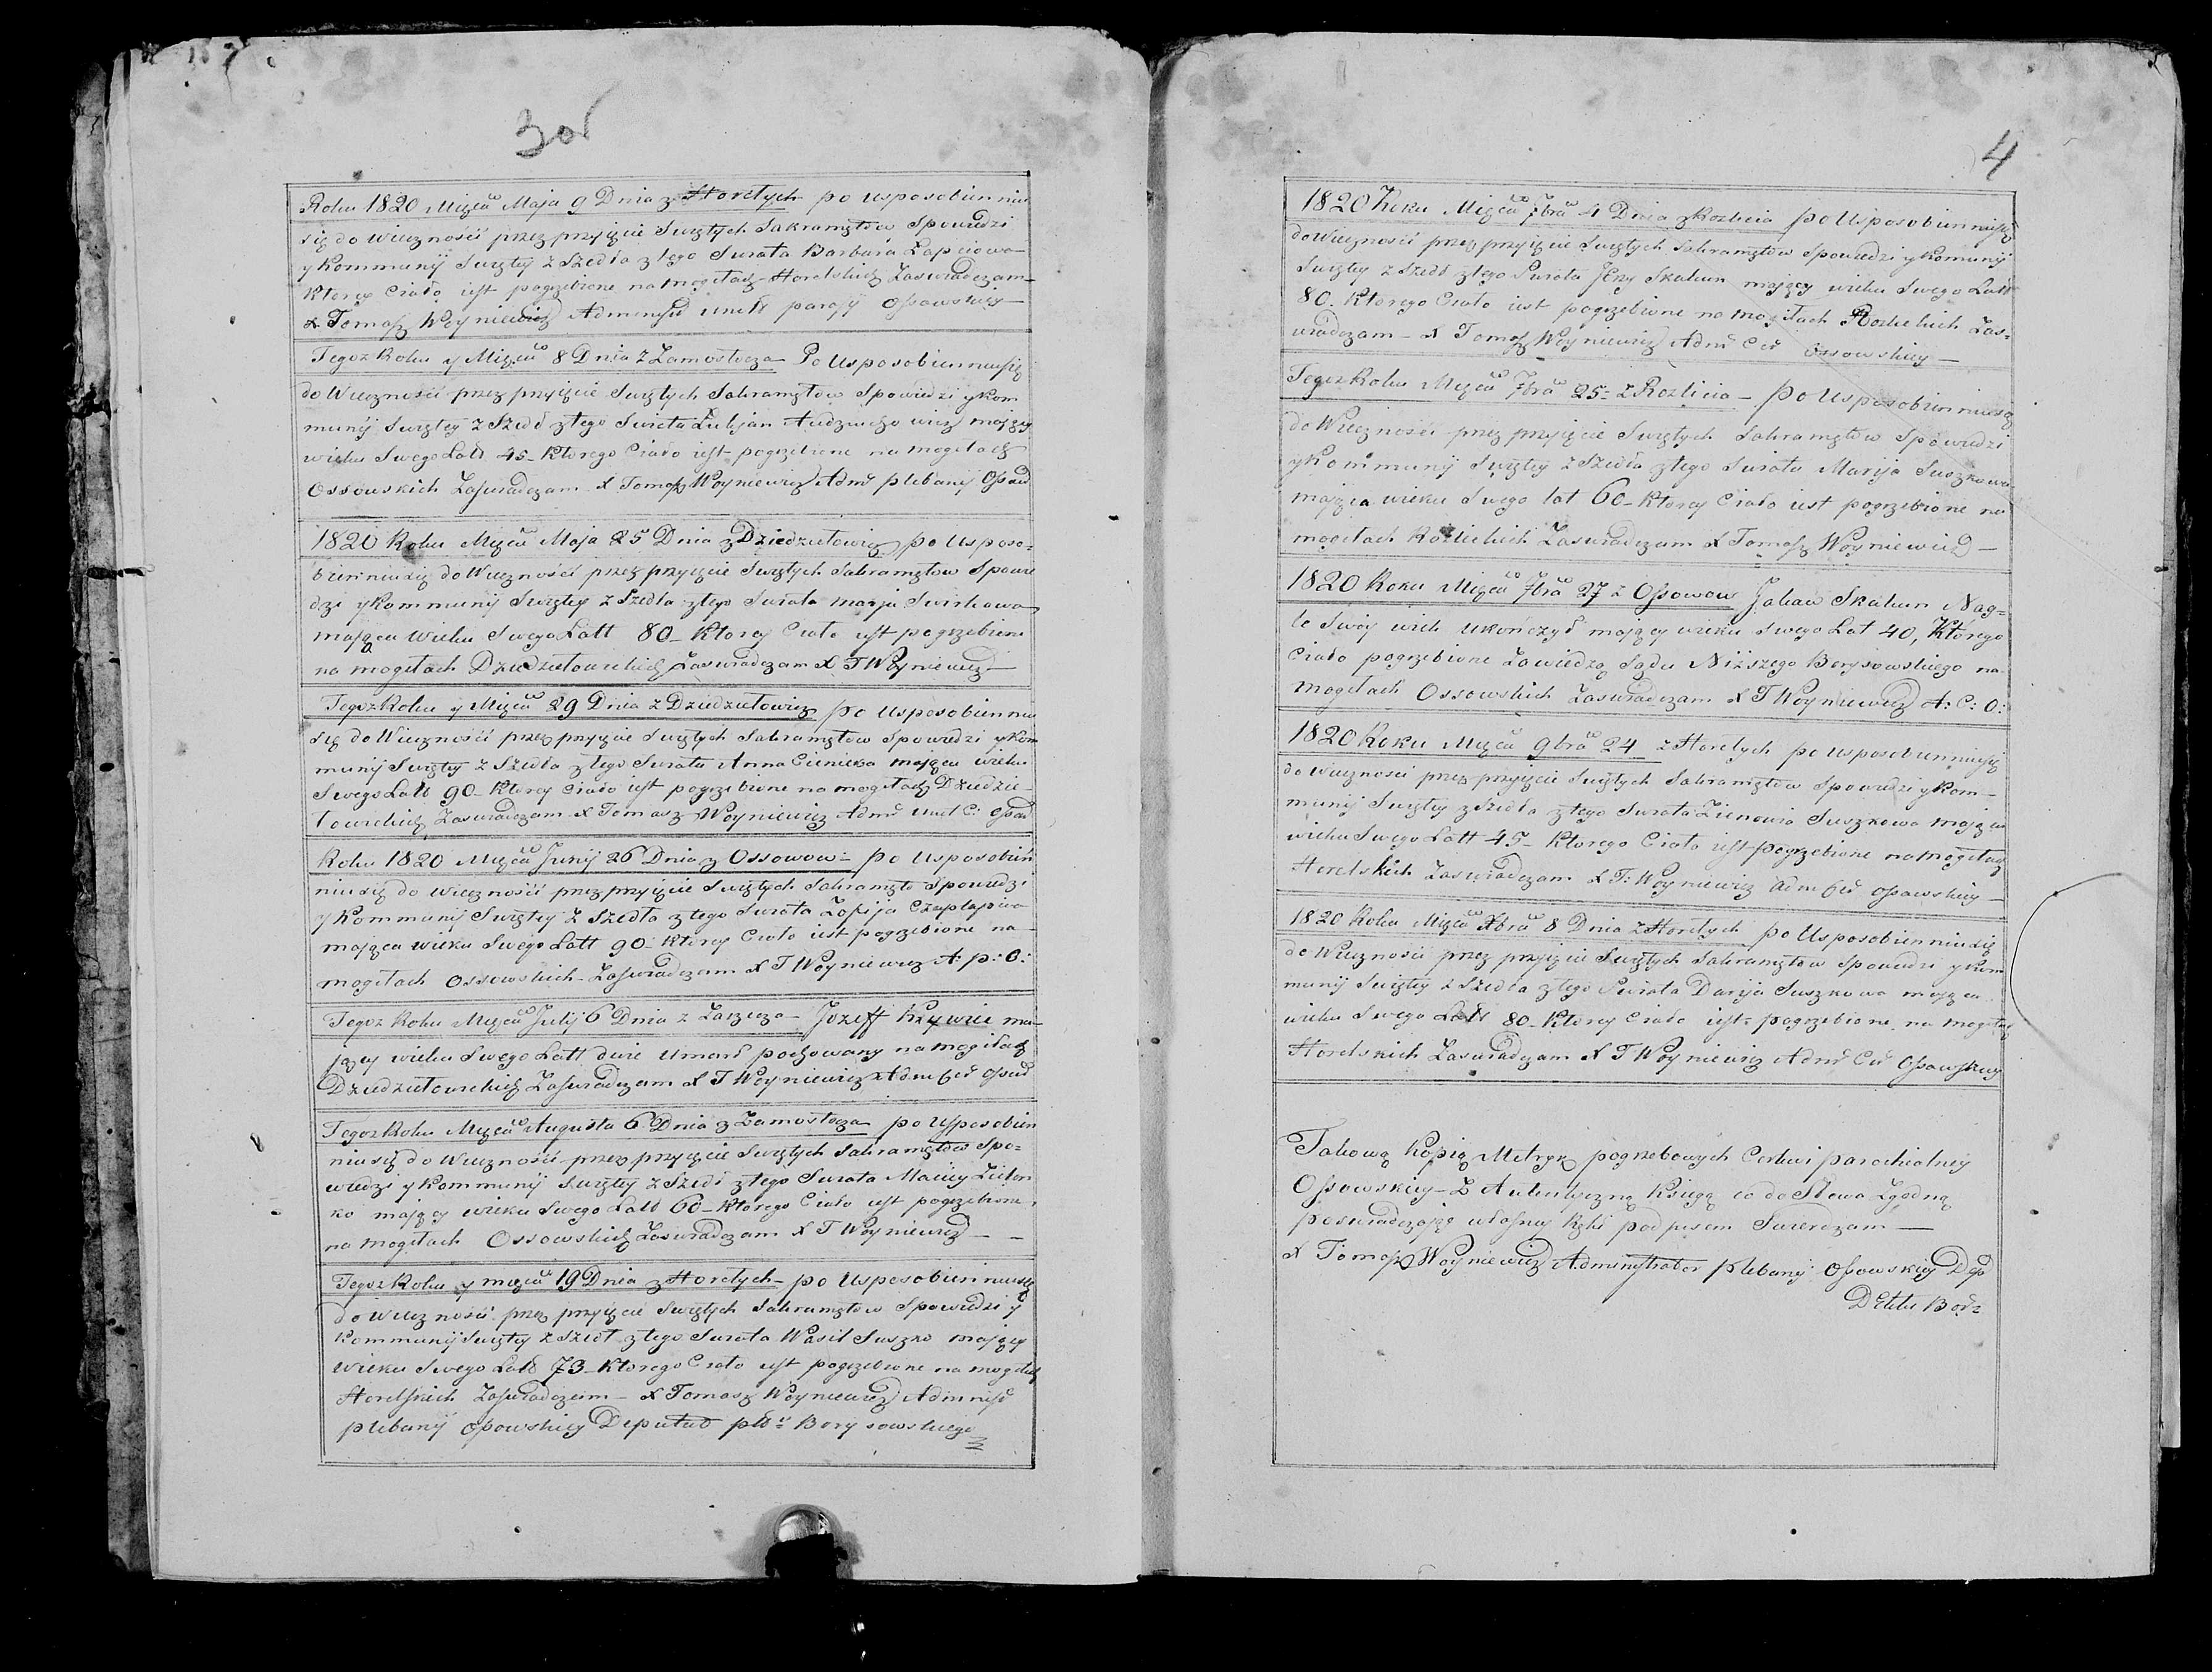 30f
Roku 1820 Mięca Maja 9 Dnia z Horełych po Usposobien niu
się do wieczności przez przyięcie Swiętych Sakramętow Spowiedzi
y Kommunij Swiętey z Szedła z tego Swiata Barbara Łapciowa
Ktorey Ciało iest pogrzebione na mogiłach Horelskich Zaswiadczam
X Tomasz Woyniewicz Administ parafij Ossowskiey
Tegoz Roku y Mięca 8 Dnia z Zamostocza Po Usposobien niu się
do Wieczności przez przyięcie Swiętych Sakramętow Spowiedzi y Kom
munij Swiętey z Szedł z tego Swiata mający
wieku Swego Latt 45 Ktorego Ciało iest pogrzebione na mogiłach
Ossowskich Zaswiadczam X Tomasz Woyniewicz Admr plebanij Ossow
1820 Roku Mięca Maja 25 Dnia z Dziedziłowicz po Usposo=
bien niu się do Wieczności przez przyięcie Swiętych Sakramętow Spowie
dzi y Kommunij Swiętey z Szedła z tego Swiata Marja Swirkowa
mająca wieku Swego Latt 80 Ktorey Ciało iest pogrzebione
na mogiłach Dziedziłowickich Zaswiadczam X T Woyniewicz
Tegoz Roku y Mięca 29 Dnia z Dziedziłowicz po Usposobien niu
się do Wieczności przez przyięcie Swiętych Sakramętow Spowiedzi y Kom
munij Swiętey z Szedła z tego Swiata Anna mająca wieku
Swego Latt 90 Ktorey Ciało iest pogrzebione na mogiłach Dziedzi
łowickich Zaswiadczam X Tomasz Woyniewicz Admr C: Ossow
Roku 1820 Mięca Junij 26 Dnia z Ossowow po Usposobień
niu się do wieczności przez przyięcie Swiętych Sakramęto Spowiedzi
y Kommunij Swiętey z Szedła z tego Swiata Zofija Czaplajowa
mająca wieku Swego Latt 90 Ktorey Ciało iest pogrzebione na
mogiłach Ossowskich Zaswiadczam X T Woyniewicz A: p: O:
Tegoz Roku Mięca Julij 6 Dnia z Zarzecza Jozeff Krzywiec ma
jący wieku Swego Latt dwie Umarł pochowany na mogiłach
Dziedziłowickich Zaswiadczam X T Woyniewicz Adm Ossow
Tegoz Roku Mięca Augusta 6 Dnia z Zamostocza po Usposobien
niu się do Wieczności przez przyięcie Swiętych Sakramętow Spo=
wiedzi y Kommunij Swiętey z Szedł z tego Swiata Maciey
ko mający wieku Swego Latt 60 Ktorego Ciało iest pogrzebione
na mogiłach Ossowskich Zaswiadczam X T Woyniewicz
Tegoz Roku y mięca 19 Dnia z Horełych po Usposobien niu się
do Wieczności przez przyięcie Swiętych Sakramętow Spowiedzi y
Kommunij Swiętey z Szedł z tego Swiata Wasil Suszko mający
wieku Swego Latt 73 Ktorego Ciało iest pogrzebione na mogiłach
Horelskich Zaswiadczam X Tomasz Woyniewicz Administ
plebanij Ossowskiey Deputat Borysowskiego
4
1820 Roku Mięca 7bra 4 Dnia z Rozlicia po Usposobien niu się
do Wieczności przez przyięcie Swiętych Sakramętow Spowiedzi y Komunij
Swiętey z Szedł z tego Swiata Jerzy Skakun mający wieku Swego Latt
80. Ktorego Ciało iest pogrzebione na mogiłach Rozlickich Zas=
wiadczam X Tomasz Woyniewicz Admr Cer Ossowskiey
Tegoz Roku Mięca 7bra 25 z Rozlicia po Usposobien niu się
do Wieczności przez przyięcie Swiętych Sakramętow Spowiedzi
y Kommunij Swiętey z Szedła z tego Swiata Marija Suszkowa
mająca wieku Swego lat 60 Ktorey Ciało iest pogrzebione na
mogiłach Rozlickich Zaswiadczam X Tomasz Woyniewicz
1820 Roku Mięca 7bra 27 z Ossowow Skakun Nag=
le Swoy wiek Ukończył mający wieku Swego Lat 40, Którego
Ciało pogrzebione Zawiedzą Sądu Niższego Borysowskiego na
mogiłach Ossowskich Zaswiadczam X T Woyniewicz A: C: O:
1820 Roku Mięca 9bra 24 z Horełych po Usposobien niu się
do wieczności przez przyięcie Swiętych Sakramętow Spowiedzi y Kom
munij Swiętey z Szedła z tego Swiata Zienowia Suszkowa mająca
wieku Swego Latt 45 Ktorego Ciało iest pogrzebione na mogiłach
Horelskich Zaswiadczam X T: Woyniewicz Adm Cer Ossowskiey
1820 Roku Mięca Xbra 8 Dnia z Horełych po Usposobien niu się
do Wieczności przez przyięcie Swiętych Sakramętow Spowiedzi y Kom
munij Swiętey z Szedła z tego Swiata Darija Suszkowa mająca
wieku Swego Latt 80 Ktorey Ciało iest pogrzebione na mogiłach
Horelskich Zaswiadczam X T Woyniewicz Admr Cer Ossowskiey
Takową Kopią Metryk pogrzebowych Cerkwi parochialney
Ossowskiey Z Autentyczną Księgą co do Słowa Zgodną
poswiadczając własney Ręki podpisem Twierdzam
X Tomasz Woyniewicz Administrator plebanij Ossowskiey Dep
Dttu Bor